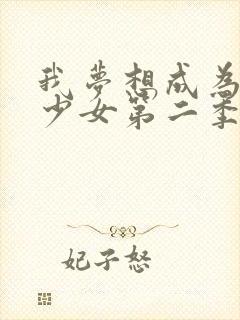 我夢想成為
少女第二季
妃子怒